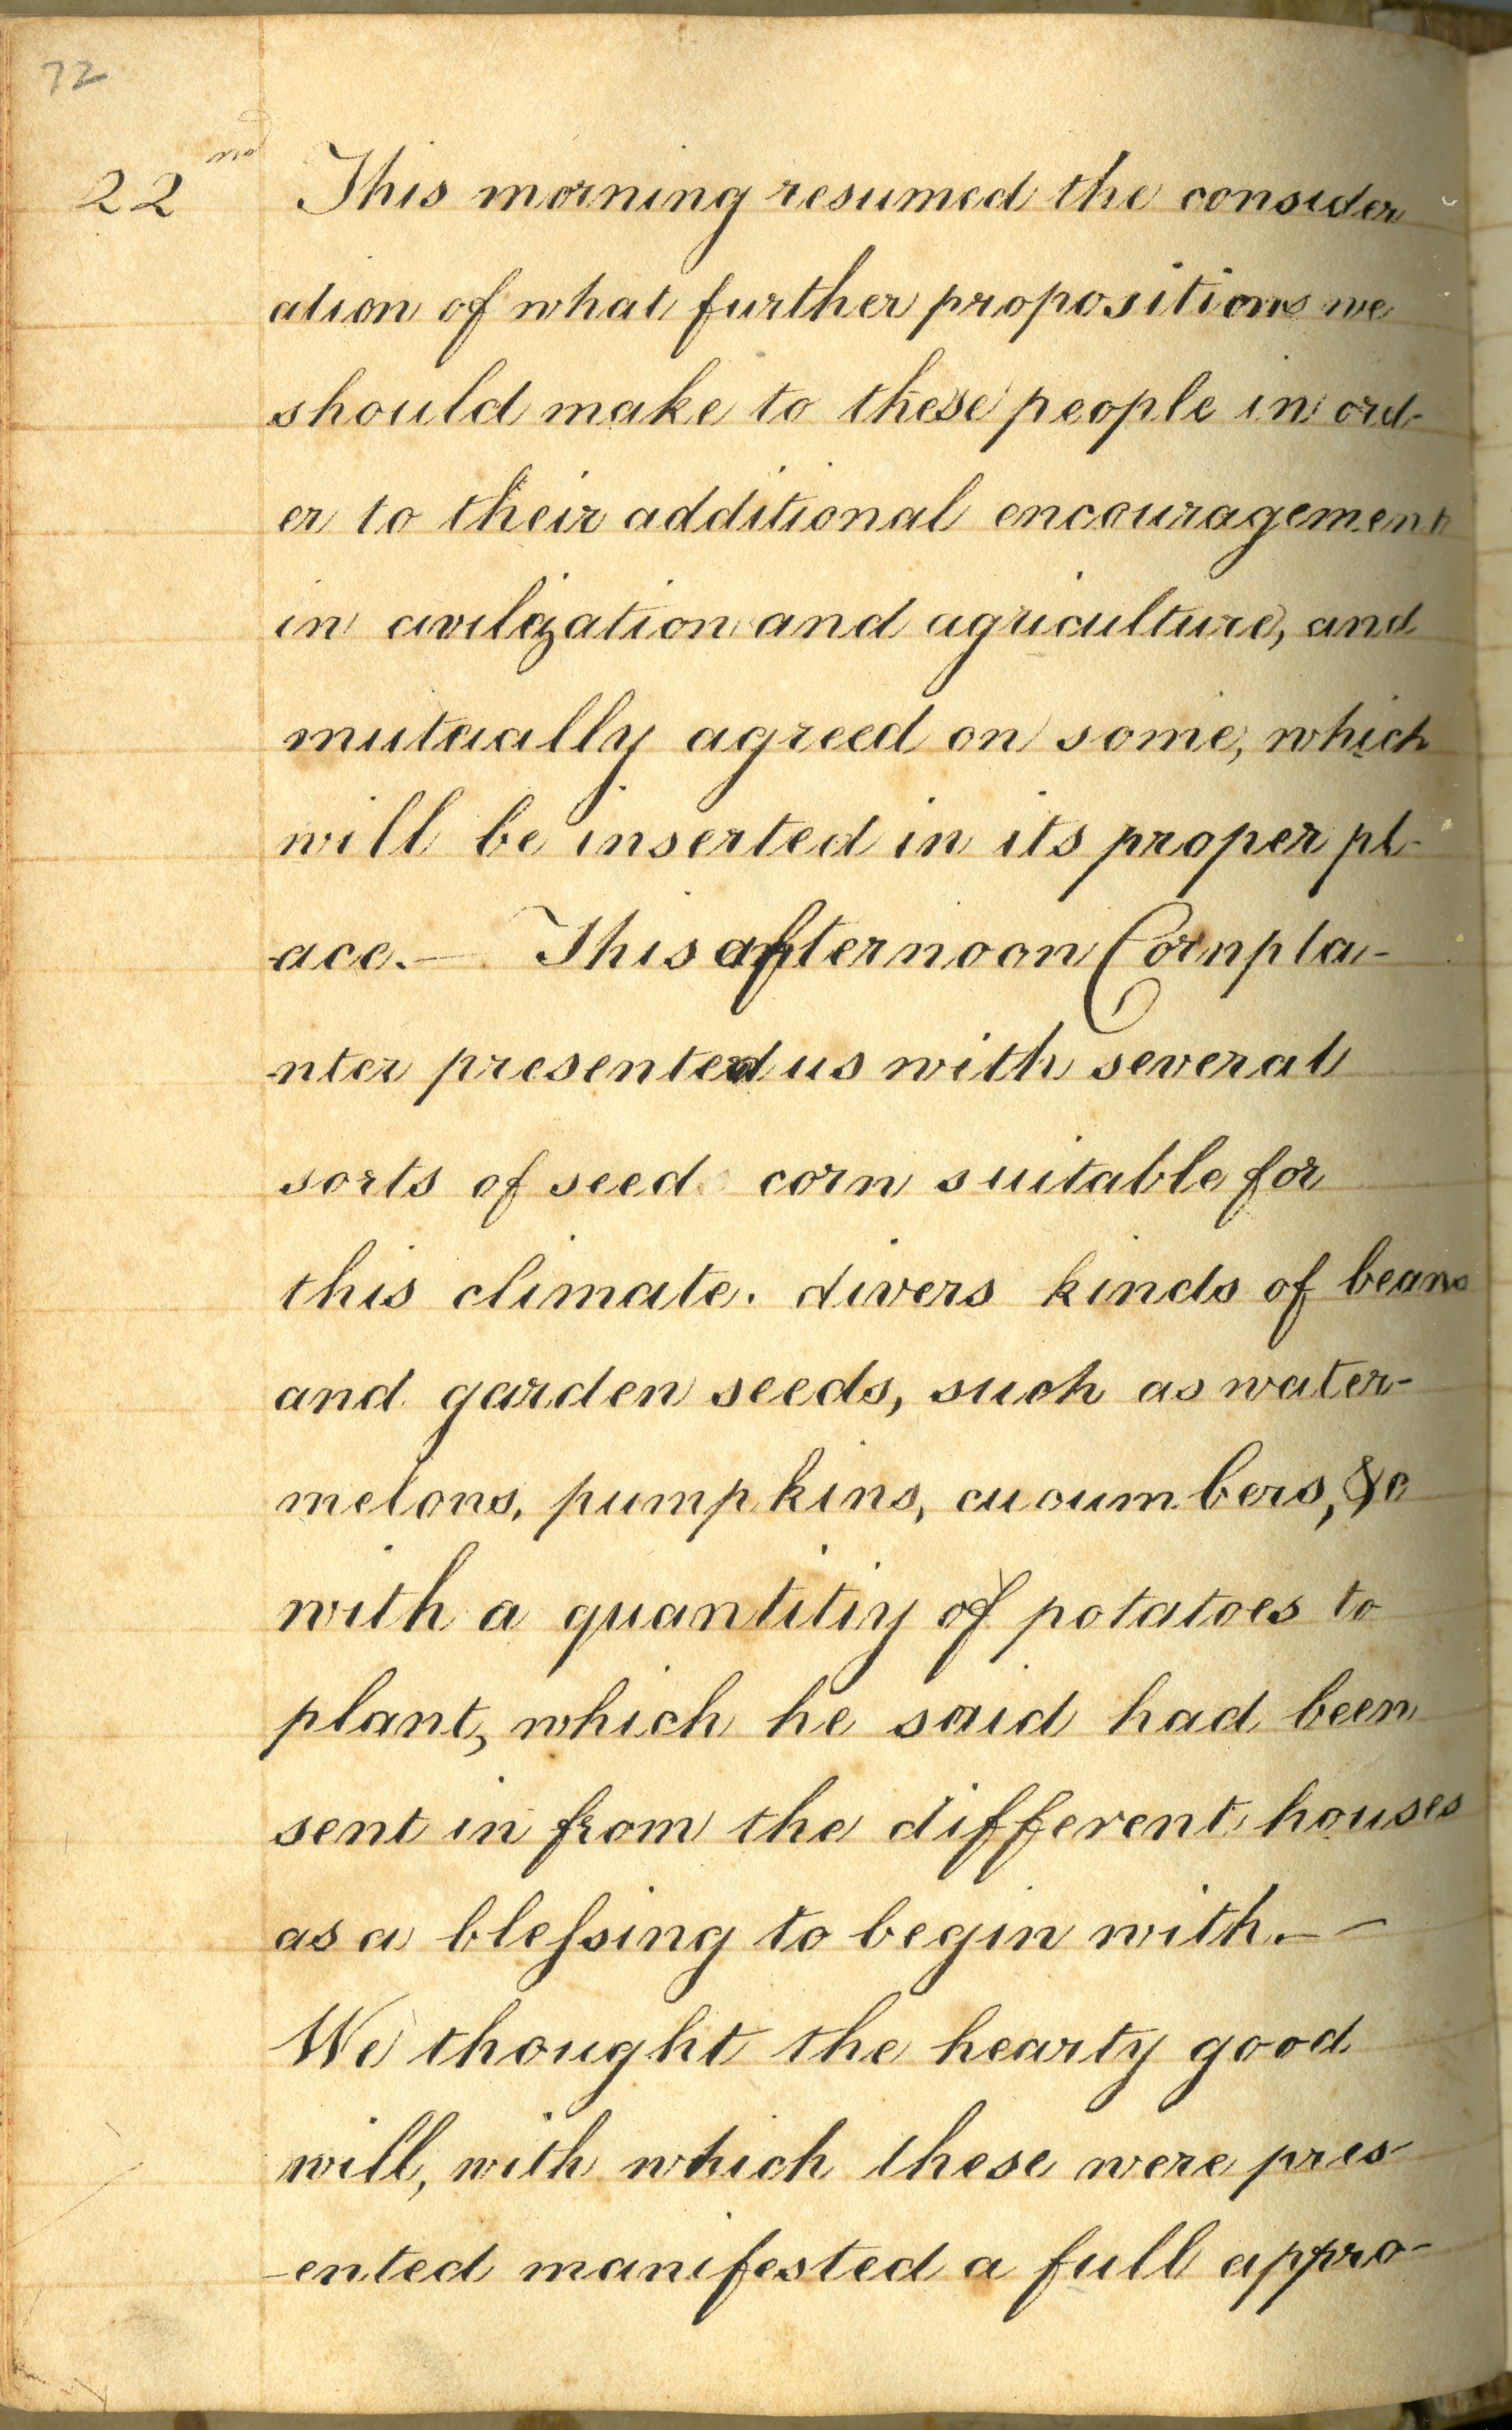 72
22nd This morning resumed the consider
ation of what further propositions we
should make to these people in ord-
er to their additional encouragement
in civilization and agriculture, and
mutually agreed on some, which
will be inserted in its proper pl-
ace.— This afternoon Cornpla-
nter presented us with several
sorts of seed corn suitable for
this climate. divers kinds of beans
and garden seeds, such as water-
melons, pumpkins, cucumbers, &c
with a quantitiy of potatoes to
plant, which he said had been
sent in from the different houses
as a bleſsing to begin with.—
We thought the hearty good
will, with which these were pres-
-ented manifested a full appro-